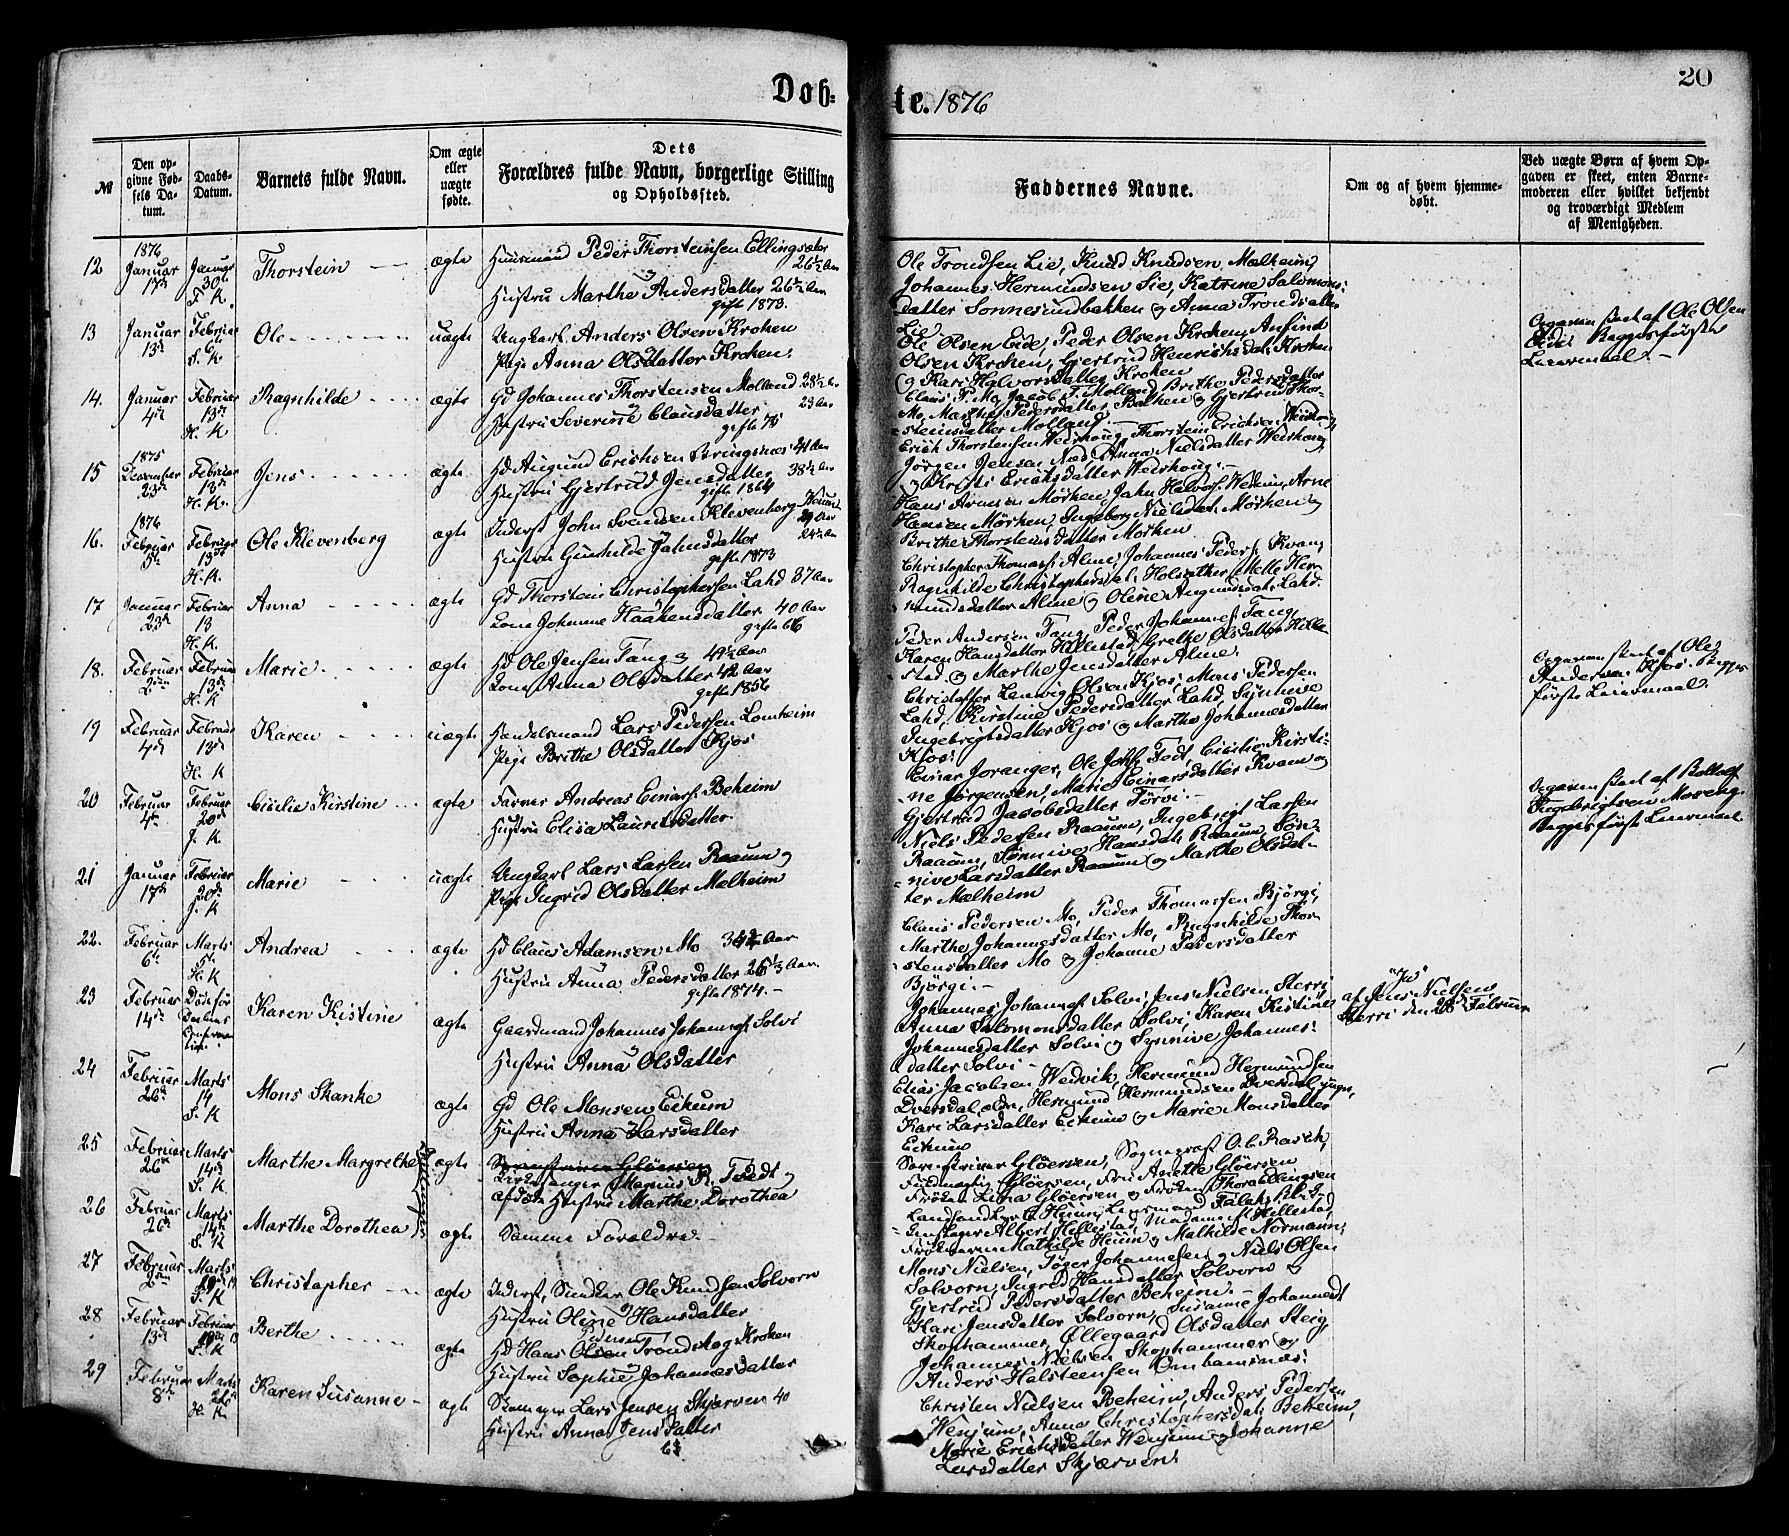 Døb-
te. 1876
20
№
Den opgivne Fødsels Datum.
Daabs-Datum.
Barnets fulde Navn.
Om ægte eller uægte fødte.
Dets
Forældres fulde Navn, borgerlige Stilling
og Opholdssted.
Faddernes Navne.
Om og af hvem hjemmedøbt.
Ved uægte Børn af hvem Opgaven er skeet, enten Barnemoderen eller hvilket bekjendt og troværdigt Medlem af Menigheden.
12
1876
Januar
17de
Januar
30te
F. K.
Thorstein
ægte
Huusmand Peder Thorsteinsen Ellingsæter
26½ Aar
Hustru Marthe Andersdatter 26½ Aar
gifte 1873.
Ole Trondsen Lie, Knud Knudsen Mælheim,
Johannes Hermundsen Lie, Katrine Salomons-
datter Sonnesundbakken og Anna Trondsdatter
Lie
13
Januar
13de
Februar
6te
S. K
Ole
uægte
Ungkarl Anders Olsen Kroken
Pige Anna Olsdatter Kroken.
Ole Olsen Eide, Peder Olsen Kroken, Ansind
Olsen Kroken, Gjertrud Henrichsdat. Kroken
og Kari Halvorsdatter Kroken
Opgaven skeet af Ole Olsen
Eide. Begges første
Leiermaal. -
14.
Januar
4de
Februar
13de
H. K
Ragnhilde
ægte
Gd Johannes Thorstensen Molland 28½ Aar
23 Aar
Hustru Severine Clausdatter
gifte 75
Claus P. Mo, Jacob T. Molland, Brithe Pedersdatter
Mo, Marthe Pedersdatter Bakken og Gjertrud Thor-
steinsdatter Molland.
15
1875
December
23de
Februar
13de
H. K.
Jens
ægte
Gd Augund Erichsen Bringsnæs 41 Aar
38½ Aar
Hustru Gjertrud Jensdatter
gifte 1864
Erich Thorstensen Weishoug, Thorstein Erichsen Weishoug,
Jørgen Jensen Næs, Anna Nielsdatter Weishoug
og Kristi Eriksdatter Weishoug. -
16.
1876
Februar
5te
Februar
13de
H. K.
Ole Klevenberg
ægte
Inderst John Svendsen Klevenberg
29 Aar
24½ Aar
Hustru Gunhilde Johnsdatter
gifte 1873
Hans Arnesen Mørken, John Halvors. Weum, Arne
Hansen Mørken, Ingeborg Nielsdat. Mørken og
Brithe Thorsteinsdatter Mørken
17
Januar
23de
Februar
13
H. K.
Anna
ægte
Gd Thorstein Christophersen Lahd 37 Aar
Kone Johanne Haakensdatter 40 Aar
gifte 66
Christopher Thomass. Alme, Johannes Peders. Kvam,
Ragnhilde Christophersdat. Holsæther, Melle Her-
mundsdatter Alme og Oline Augundsdat. Lahd.
18.
Februar
2den
Februar
13de
H. K
Marie
ægte
Gd Ole Jensen Tang 49½ Aar
Kone Anna Olsdatter 42 Aar
gifte 1856
Peder Andersen Tang, Peder Johannes. Tang,
Karen Hansdatter Hillestad, Grethe Olsdatter Hille-
stad og Marthe Jensdatter Alme.
19
Februar
4de
Februar
13de
H. K
Karen
uægte
Handelsmand Lars Pedersen Lomheim
Pige Brithe Olsdatter Kjos
Christoffer Ludvig Olsen Kjos, Mons Pedersen
Lahd, Kirstine Pedersdatter Lahd, Synneve
Ingebrigtsdatter Kjos og Marthe Johannesdatter
Kjos.
Opgaven skeet af Ole
Andersen Kjos. Begges
første Leiermaal.
20
Februar
4de
Februar
20de
J. K.
Cicilia Kirstine
ægte
Farver Andreas Einars. Beheim
Hustru Elisa Lauritsdatter
Einar Joranger, Ole Joh. Fedt, Cicilia Kirsti-
ne Jørgensen, Marie Einarsdatter Kvam og
Gjertrud Jacobsdatter Tørvi. -
21
Januar
17de
Februar
20de
J. K
Marie
uægte
Ungkarl Lars Larsen Raaum og
Pige Ingrid Olsdatter Mælheim
Niels Pedersen Raaum, Ingebrigt Larsen
Raaum, Sønnive Hansdat. Raaum, Søn-
nive Larsdatter Raaum og Marthe Olsdat-
ter Mælheim
Opgaven skeet af
Ingebrigtsen Moreng.
Begges første Leiermaal.
22.
Februar
6te
Marts
5te
H. K
Andrea
ægte
Gd Claus Adamsen Mo 34½ Aar
Hustru Anna Pedersdatter 26⅓ Aar.
gifte 1874. -
Claus Pedersen Mo, Peder Thomassen Bjørgi,
Marthe Johannesdatter Mo, Ragnhilde Thor-
stensdatter Mo og Johanne Pedersdatter
Bjørgi. -
23
Februar
14de
Døde før
Daabens
Confirmation.
Karen Kistine
ægte
Gaardmand Johannes Johannes. Solvi
Hustru Anna Olsdatter
Johannes Johannes. Solvi, Jens Nielsen Herri
Anna Salomonsdatter Solvi, Karen Kistine
Johannesdatter Solvi og Synnive Johannes-
datter Solvi -
"Ja"
af Jens Nielsen
Herri den 28de Februar
24
Februar
26de
Marts
14
S. K
Mons Skanke
ægte
Gd Ole Monsen Eikum
Hustru Anna Larsdatter
Elias Jacobsen Wedvik, Hermund Hermundsen
Dvergsdal, ældre, Hermund Hermundsen Dvergsdal, yngre,
Kari Larsdatter Eikum og Marie Monsdatter
Eikum
25
Februar
26de
Marts
14de
S. K
Marthe Margrethe
Tvillinger
ægte
Kirkesanger Magnus R. Tvedt og
afdøde Hustru Marthe Dorothea
Sorenskriver Gløersen, Sogneprest O. C. Rasch,
Fuldmægtig Gløersen, Fru Anette Gløersen
Frøken Lina Gløersen og Frøken Thora Ellingsen
26
Februar
26de
Marts
14de
S. K
Marthe Dorothea
ægte
Samme Forældre -
Albert Hillestad, Madame M. Hillestad,
Mathilde Heum og Mathilde Normann,
27
Februar
2den
Marts
S. K
Christopher
ægte
Inderst, Snedker Ole Knudsen Solvorn
Hustru Oline Hansdatter
Mons Nielsen, Tøger Johannesen og Niels Olsen
Solvorn, Ingrid Hansdatter Solvorn og
Gjertrud Pedersdatter Beheim. -
28
Februar
13de
Februar
S. K
Berthe
ægte
Gd Hans Trondsteg Kroken
Hustru Sophie Johannesdatter
Kari Jensdatter Solvorn, Susanne Johannesdt
Skophammer, Øllegaard Olsdatter Steig,
Johannes Nielsen Skophammer og
Anders Halsteensen Ornhamsnæs.
29
Februar
8de
Marts
26de
H. K
Karen Susanne
ægte
Skomager Lars Jensen Skjerven 40
Hustru Anna Jensdatter
Christen Nielsen Beheim, Anders Pedersen
Wenjum, Anna Christophersdat. Beheim,
Marie Erichsdatter Wenjum og Johanne
Larsdatter Skjærven.